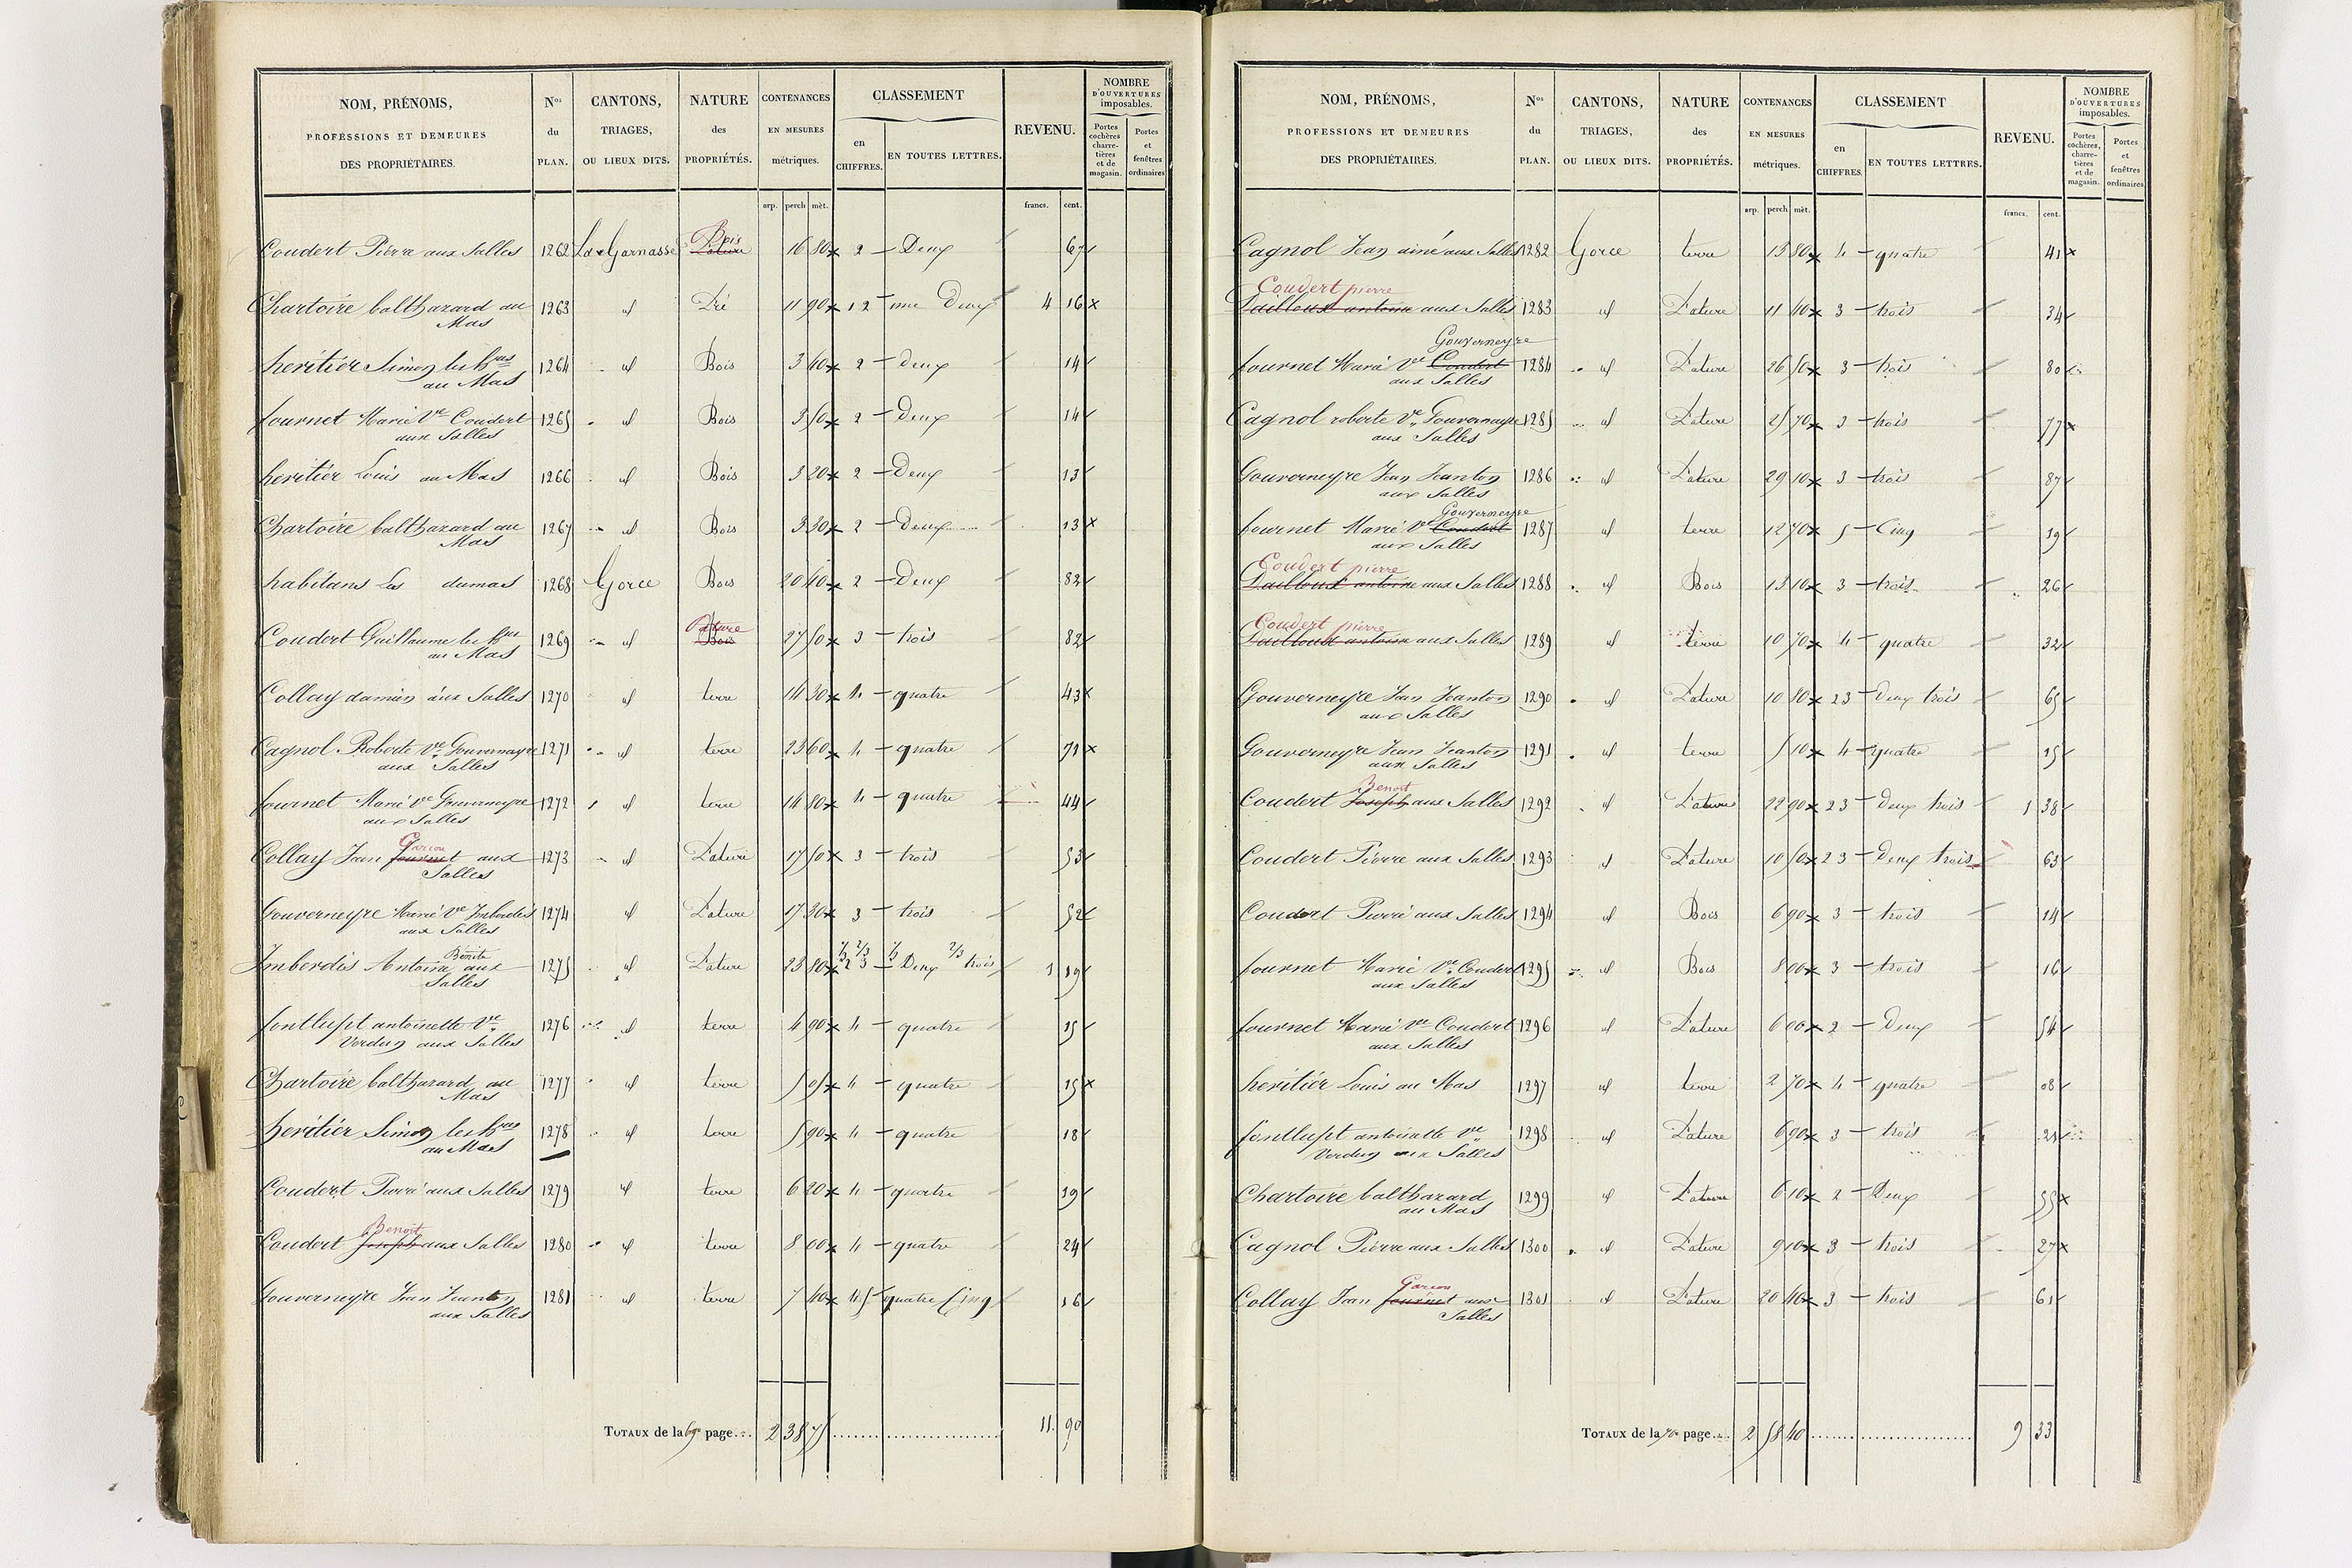 NOM, PRÉNOMS, PROFESSIONS ET DEMEURES DES PROPRIÉTAIRES. Nos du PLAN. CANTONS, TRIAGES, OU LIEUX DITS. NATURE des PROPRIÉTÉS. CONTENANCES EN MESURES métriques. CLASSEMENT en CHIFFRES. EN TOUTES LETTRES. REVENU. NOMBRE D'OUVERTURES imposables. Portes cochères charretières et de magasin. Portes et fenêtres ordinaires
arp. perch mèt. francs. cent.
Coudert Pierre aux Salles 1262 La Garnasse Bois Pature 16 80 2 Deux 67
Chartoire balthazard au Mas 1263 id Pré 11 90 1 2 une Deux 4 16
heritier Simon les hers au Mas 1264 id Bois 3 40 2 deux 14
fournet Marie Ve Coudert aux Salles 1265 id Bois 3 50 2 Deux 14
heritier Louis au Mas 1266 id Bois 3 20 2 Deux 13
Chartoire balthazard au Mas 1267 id Bois 3 30 2 Deux 13
habitans Les dumas 1268 Gorce Bois 20 40 2 Deux 82
Coudert Guillaume les hers au Mas 1269 id Pature Bois 27 50 3 trois 82
Collay damien aux Salles 1270 id terre 14 30 4 quatre 43
Cagnol Roberte Ve Gouverneyre aux Salles 1271 id terre 23 60 4 quatre 71
fournet Marie Ve Gouverneyre aux Salles 1272 id terre 14 80 4 quatre 44
Collay Jean Garcon fournet aux Salles 1273 id Pature 17 50 3 trois 53
Gouverneyre Marie Ve Imberdis aux Salles 1274 id Pature 17 30 3 trois 52
Imberdis Antoine Bénite aux Salles 1275 id Pature 23 80 1/3 2/3 2 3 1/3 Deux 2/3 trois 1 19
fontlupt antoinette Ve Verduy aux Salles 1276 id terre 4 90 4 quatre 15
Chartoire balthazard au Mas 1277 id terre 5 05 4 quatre 15
heritier Simon les hers au Mas 1278 id terre 5 90 4 quatre 18
Coudert Pierre aux Salles 1279 id terre 6 20 4 quatre 19
Coudert Benoit Joseph aux Salles 1280 id terre 8 00 4 quatre 24
Gouverneyre Jean Jeanton aux Salles 1281 id terre 7 40 4 5 quatre Cinq 16
TOTAUX de la 69e page... 2 38 75 11. 90
NOM, PRÉNOMS, PROFESSIONS ET DEMEURES DES PROPRIÉTAIRES. Nos du PLAN. CANTONS, TRIAGES, OU LIEUX DITS. NATURE des PROPRIÉTÉS. CONTENANCES EN MESURES métriques. CLASSEMENT en CHIFFRES. EN TOUTES LETTRES. REVENU. NOMBRE D'OUVERTURES imposables. Portes cochères, charretières et de magasin. Portes et fenêtres ordinaires.
arp. perch mèt. francs. cent.
Cagnol Jean ainé aux Salles 1282 Gorce terre 13 80 4 quatre 41
Coudert pierre Dailloux antoine aux Salles 1283 id Pature 11 40 3 trois 34
fournet Marie Ve Gouverneyre Coudert aux Salles 1284 id Pature 26 50 3 trois 80
Cagnol roberte Ve Gouverneyre aux Salles 1285 id Pature 25 70 3 trois 77
Gouverneyre Jean Jeanton aux Salles 1286 id Pature 29 10 3 trois 87
fournet Marie Ve Gouverneyre Coudert aux Salles 1287 id terre 12 70 5 Cinq 19
Coudert pierre Dailloux antoine aux Salles 1288 id Bois 13 10 3 trois 26
Coudert pierre Dailloux antoine aux Salles 1289 id terre 10 70 4 quatre 32
Gouverneyre Jean Jeanton aux Salles 1290 id Pature 10 80 2 3 Deux trois 65
Gouverneyre Jean Jeanton aux Salles 1291 id terre 5 10 4 quatre 15
Coudert Benoit Joseph aux Salles 1292 id Pature 22 90 2 3 Deux trois 1 38
Coudert Pierre aux Salles 1293 id Pature 10 50 2 3 Deux trois 63
Coudert Pierre aux Salles 1294 id Bois 6 90 3 trois 14
fournet Marie Ve Coudert aux Salles 1295 id Bois 8 00 3 trois 16
fournet Marie Ve Coudert aux Salles 1296 id Pature 6 00 2 Deux 54
heritier Louis au Mas 1297 id terre 2 70 4 quatre 08
fontlupt antoinette Ve Verduy aux Salles 1298 id Pature 6 90 3 trois 21
Chartoire balthazard au Mas 1299 id Pature 6 10 2 Deux 55
Cagnol Pierre aux Salles 1300 id Pature 9 10 3 trois 27
Collay Jean Garcon fournet aux Salles 1301 id Pature 20 40 3 trois 61
TOTAUX de la 70e page... 2 58 40 9 33